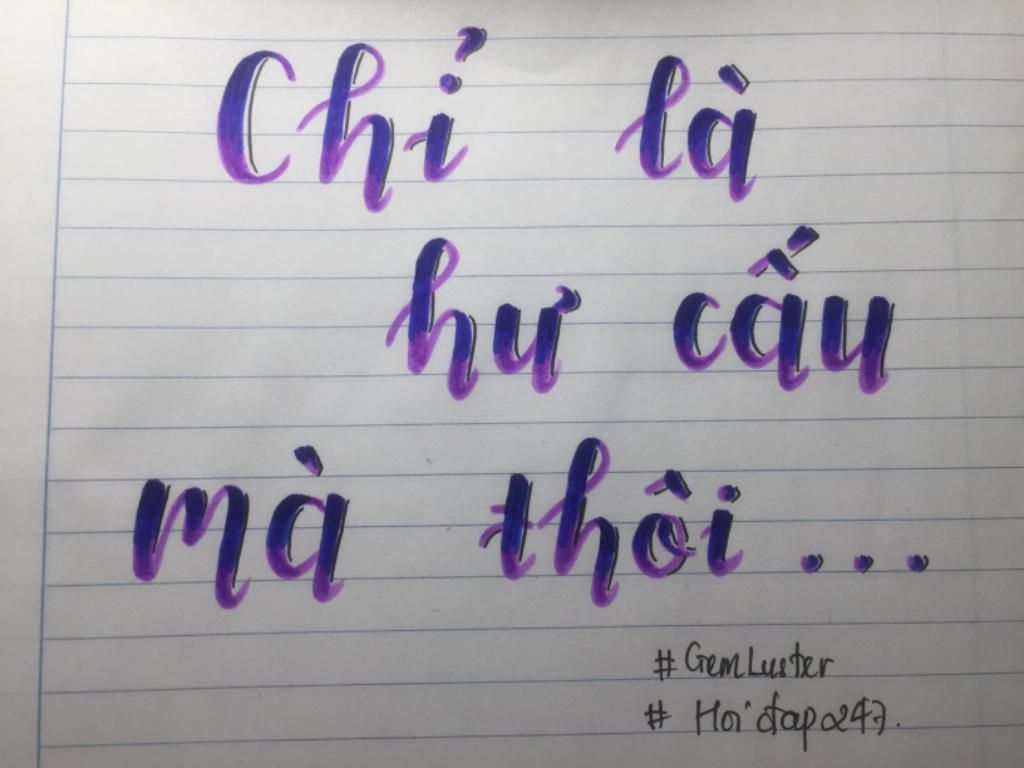 Chỉ là
hư cấu
mà thôi...
#GemLuster
# Hoidap247.